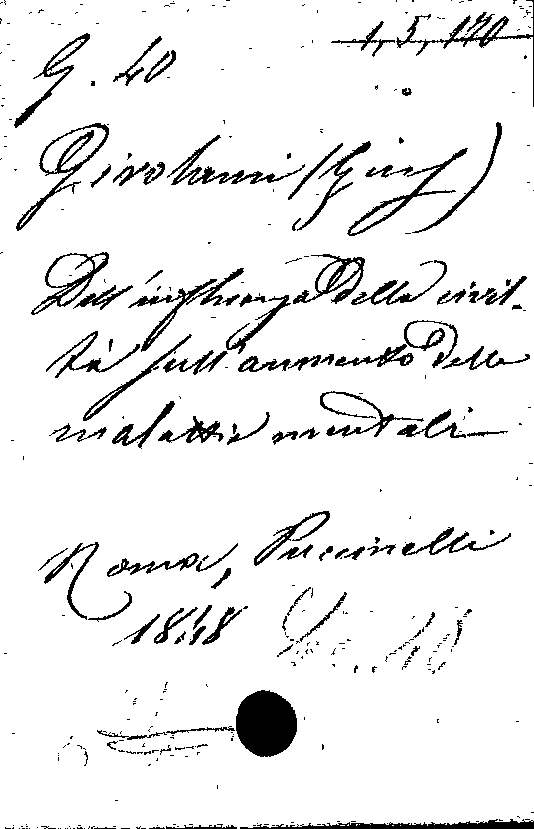 1, 5, 170
G. 40
Girolami (Gius)
Dell'influenza della civil-
tà sull'aumento delle
malattie mentali
Roma, Puccinelli
1848
40